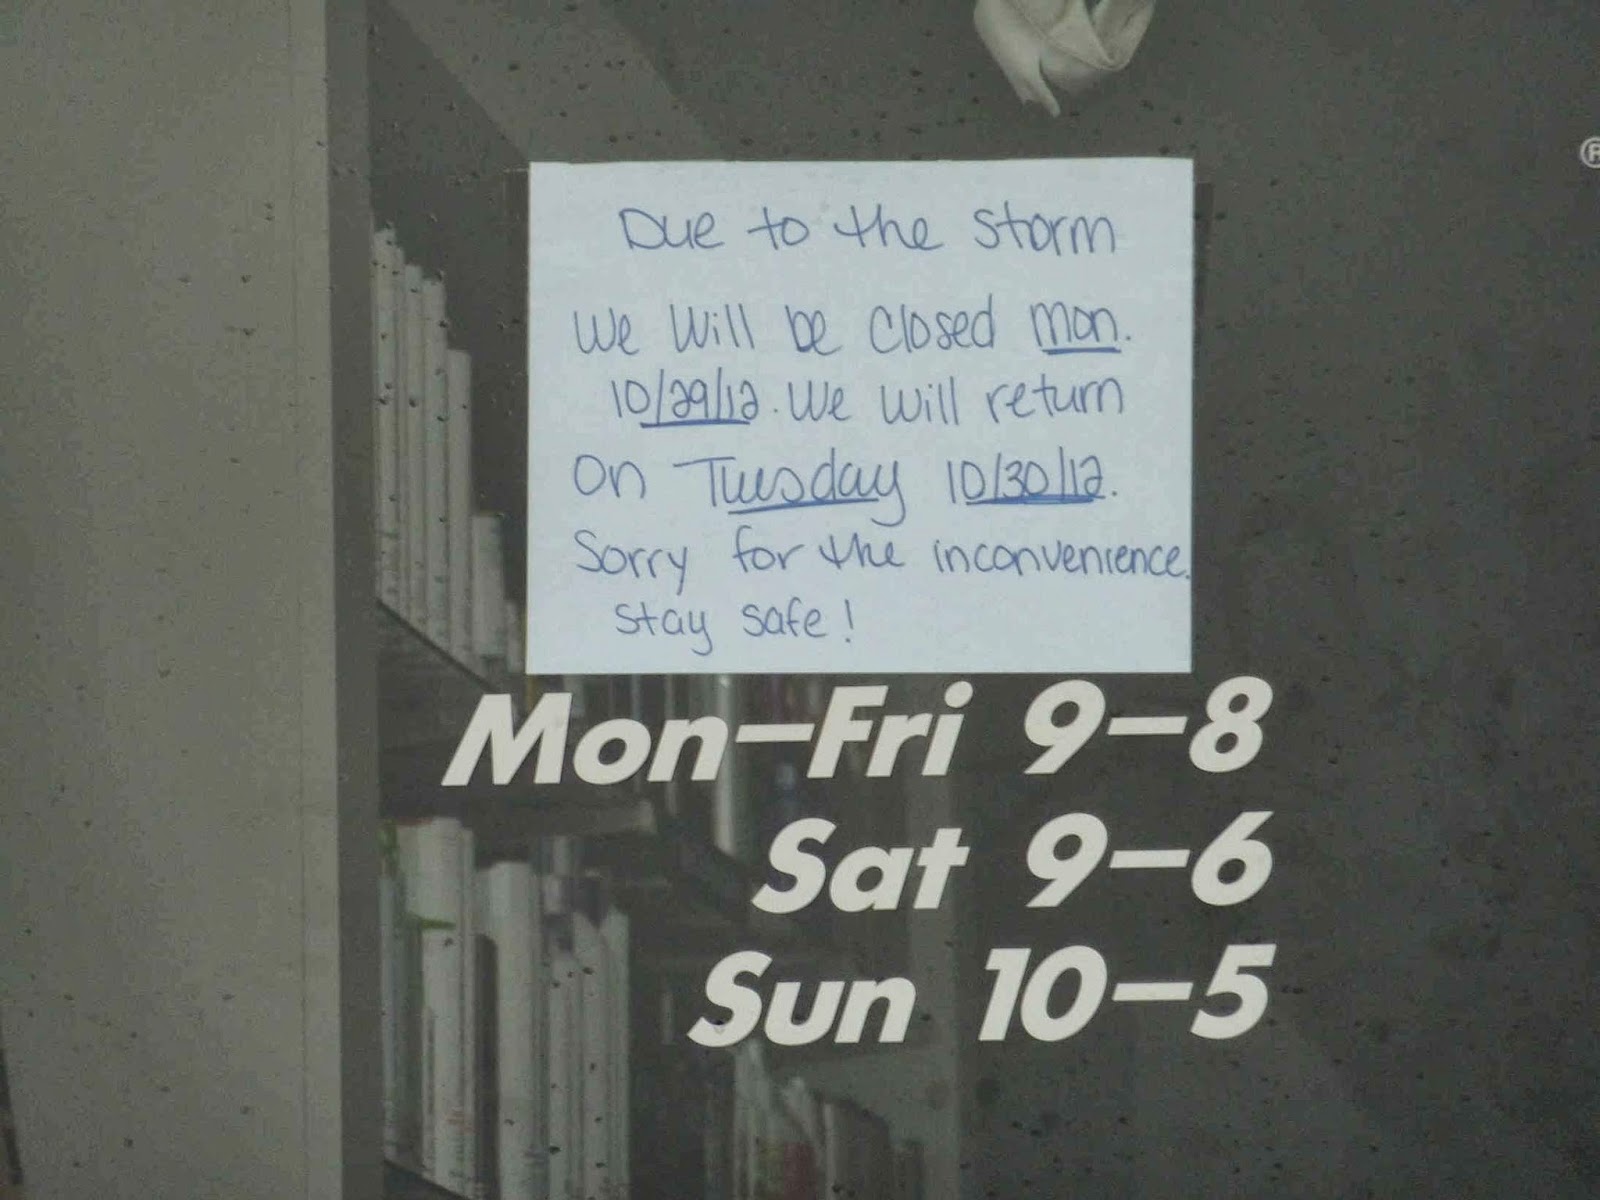 Due to the storm
We will be closed Mon.
10/29/12. We will return
on Tuesday 10/30/12.
Sorry for the inconvenience.
Stay safe!
®
Mon–Fri 9–8
Sat 9–6
Sun 10–5